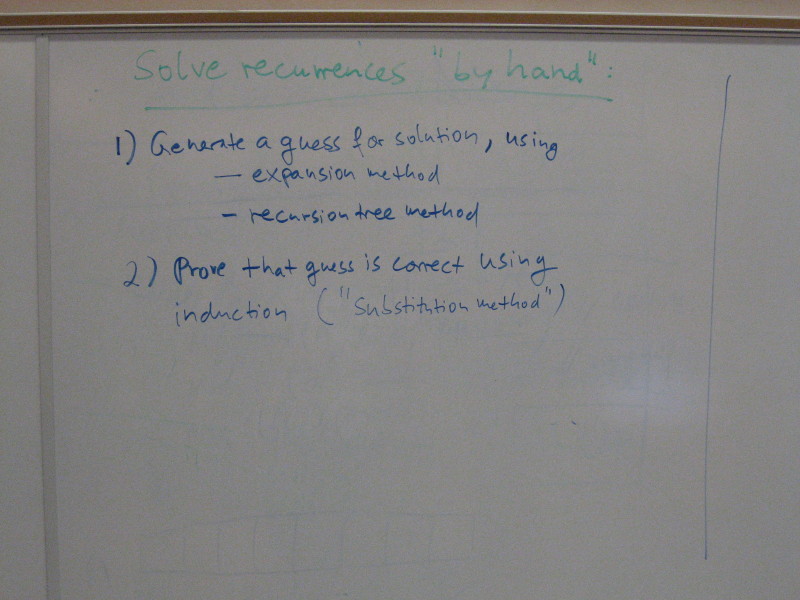 Solve recurrences "by hand":
1) Generate a guess for solution, using
— expansion method
- recursion tree method
2) Prove that guess is correct using
induction ("substitution method")